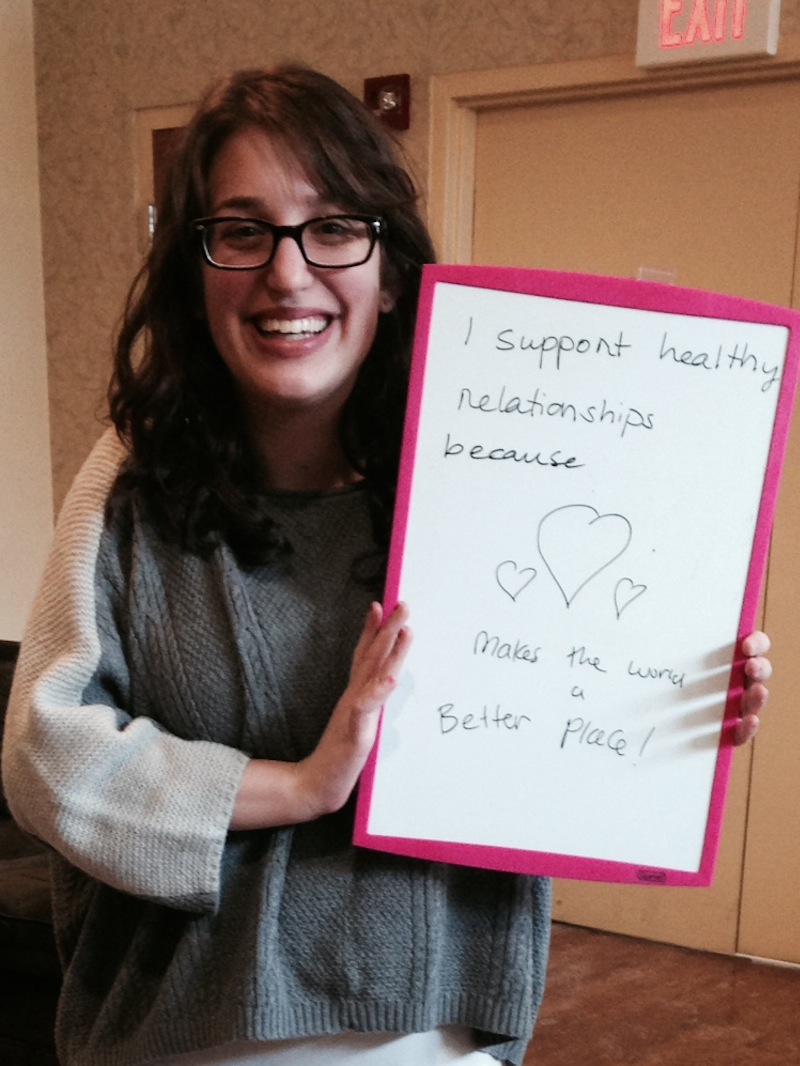 EXIT
I support healthy
relationships
because
Makes the world
a
Better place!